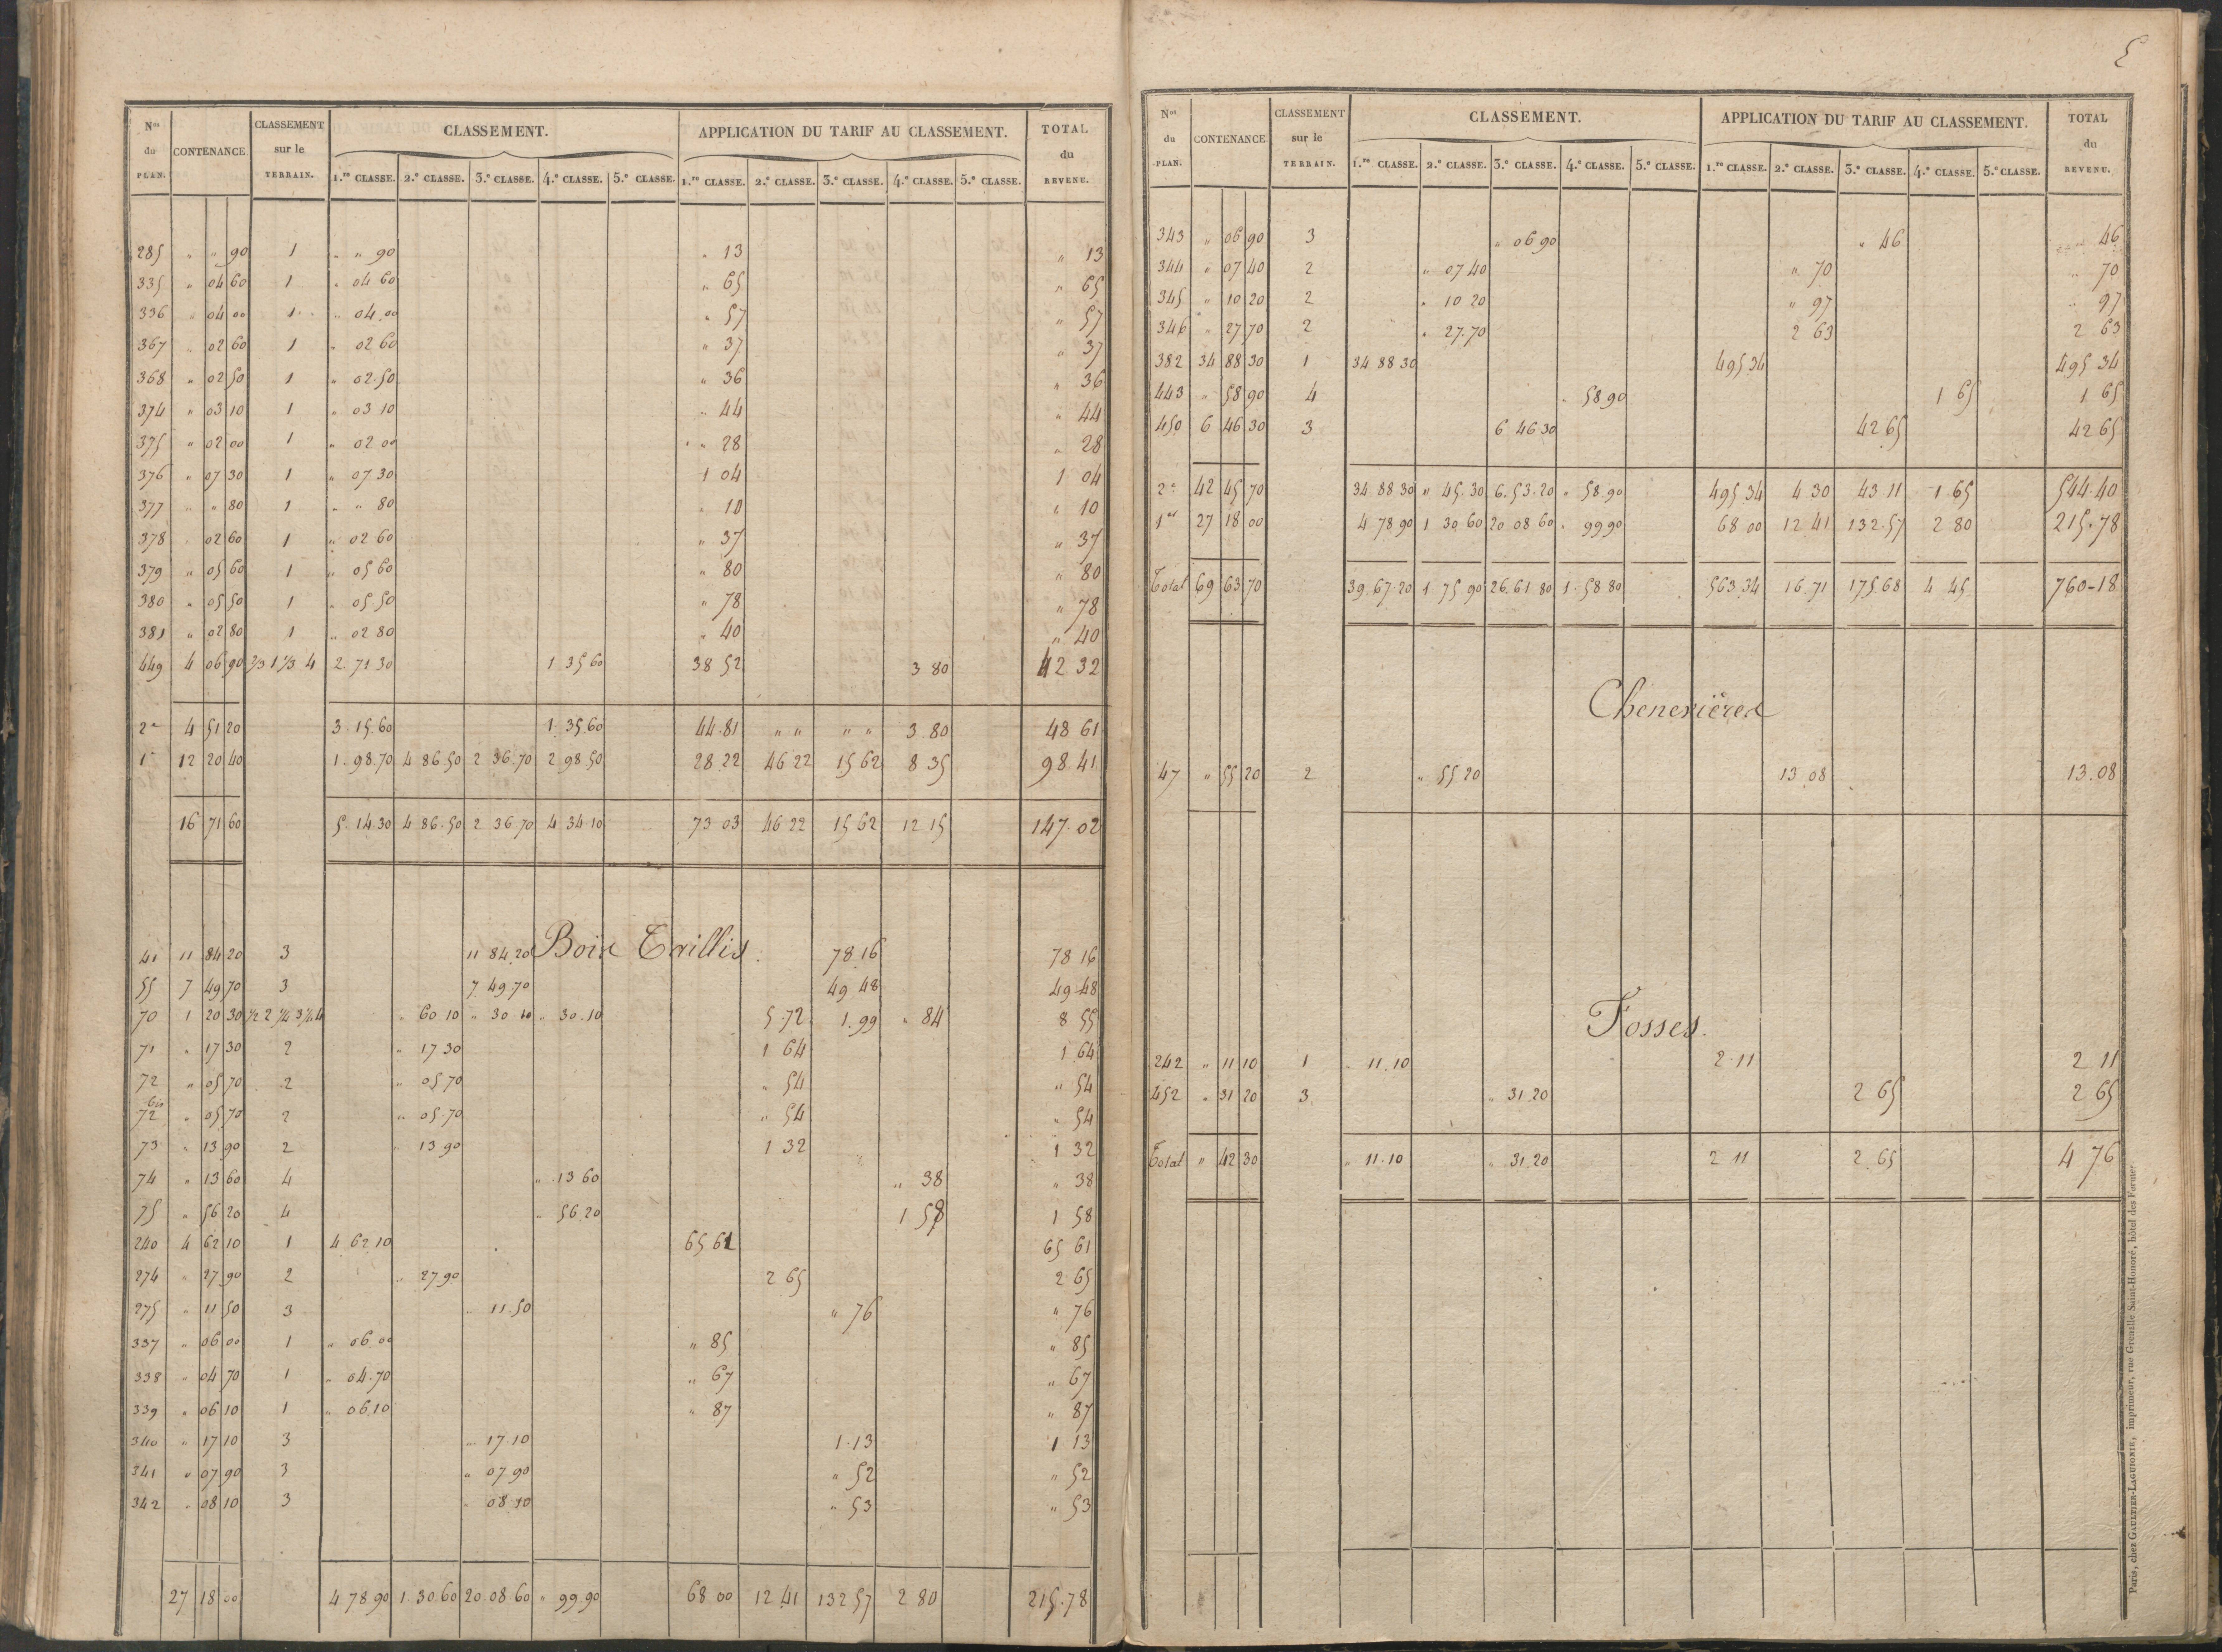 Nos du PLAN. CONTENANCE CLASSEMENT sur le TERRAIN. CLASSEMENT. APPLICATION DU TARIF AU CLASSEMENT. TOTAL du REVENU.
1.re CLASSE. 2.e CLASSE. 3.e CLASSE. 4.e CLASSE. 5.e CLASSE. 1.re CLASSE. 2.e CLASSE. 3.e CLASSE. 4.e CLASSE. 5.e CLASSE.
285 " " 90 1 " " 90 " 13 " 13
335 " 04 60 1 " 04 60 " 65 " 65
336 " 04 00 1 " 04 00 " 57 " 57
367 " 02 60 1 " 02 60 " 37 " 37
368 " 02 50 1 " 02.50 " 36 " 36
374 " 03 10 1 " 03 10 " 44 " 44
375 " 02 00 1 " 02 00 " 28 " 28
376 " 07 30 1 " 07 30 1 04 1 04
377 " " 80 1 " " 80 " 10 " 10
378 " 02 60 1 " 02 60 " 37 " 37
379 " 05 60 1 " 05 60 " 80 " 80
380 " 05 50 1 " 05 50 " 78 " 78
381 " 02 80 1 " 02 80 " 40 " 40
449 4 06 90 2/3 1 1/3 4 2.71 30 1 35 60 38 52 3 80 42 32
2e 4 51 20 3.15.60 1.35.60 44.81 " " " " 3 80 48 61
1e 12 20 40 1.98.70 4 86.50 2 36.70 2 98 50 28.22 46 22 15 62 8 35 98.41
16 71 60 5.14.30 4 86.50 2 36.70 4 34.10 73 03 46 22 15 62 12 15 147.02
Bois Taillis.
41 11 84 20 3 11 84.20 78.16 78 16
55 7 49 70 3 7 49.70 49 48 49 48
70 1 20 30 1/2 2 1/4 3 1/4 4 " 60 10 " 30 10 " 30.10 5.72 1.99 " 84 8 55
71 " 17 30 2 " 17 30 1 64 1 64
72 " 05 70 2 " 05 70 " 54 " 54
72 bis " 05 70 2 " 05.70 " 54 " 54
73 " 13 90 2 " 13 90 1 32 1 32
74 " 13 60 4 " 13 60 " 38 " 38
75 " 56 20 4 " 56.20 1 58 1 58
240 4 62 10 1 4 62.10 65 61 65 61
274 " 27 90 2 " 27.90 2 65 2 65
275 " 11 50 3 " 11.50 " 76 " 76
337 " 06 00 1 " 06 00 " 85 " 85
338 " 04 70 1 " 04.70 " 67 " 67
339 " 06 10 1 " 06.10 " 87 " 87
340 " 17 10 3 " 17.10 1.13 1 13
341 " 07 90 3 " 07 90 " 52 " 52
342 " 08 10 3 " 08.10 " 53 " 53
27 18 00 4 78 90 1.30.60 20.08.60 " 99.90 68 00 12 41 132 57 2 80 215.78
Nos du PLAN. CONTENANCE CLASSEMENT sur le TERRAIN. CLASSEMENT. APPLICATION DU TARIF AU CLASSEMENT. TOTAL du REVENU.
1.re CLASSE. 2.e CLASSE. 3.e CLASSE. 4.e CLASSE. 5.e CLASSE. 1.re CLASSE. 2.e CLASSE. 3.e CLASSE. 4.e CLASSE. 5.e CLASSE.
343 " 06 90 3 " 06 90 " 46 46
344 " 07 40 2 " 07 40 " 70 " 70
345 " 10 20 2 " 10 20 " 97 " 97
346 " 27 70 2 " 27.70 2 63 2 63
382 34 88 30 1 34 88 30 495 34 495 34
443 " 58 90 4 " 58 90 1 65 1 65
450 6 46 30 3 6 46 30 42 65 42 65
2e 42 45 70 34.88 30 " 45.30 6.53.20 " 58.90 495 34 4 30 43.11 1.65 544.40
1re 27 18 00 4 78 90 1 30 60 20 08 60 " 99 90 68 00 12 41 132.57 2 80 215.78
Total 69 63 70 39.67.20 1 75 90 26.61 80 1.58 80 563.34 16.71 175.68 4 45 760-18
Chenevières
47 " 55 20 2 " 55 20 13 08 13.08
Fosses.
242 " 11 10 1 " 11.10 2.11 2 11
452 " 31 20 3 " 31.20 2 65 2 65
Total " 42 30 " 11.10 " 31.20 2 11 2 65 4 76
Paris, chez GAULTIER-LAGUIONIE, imprimeur, rue Grenelle Saint-Honoré, hôtel des Fermes